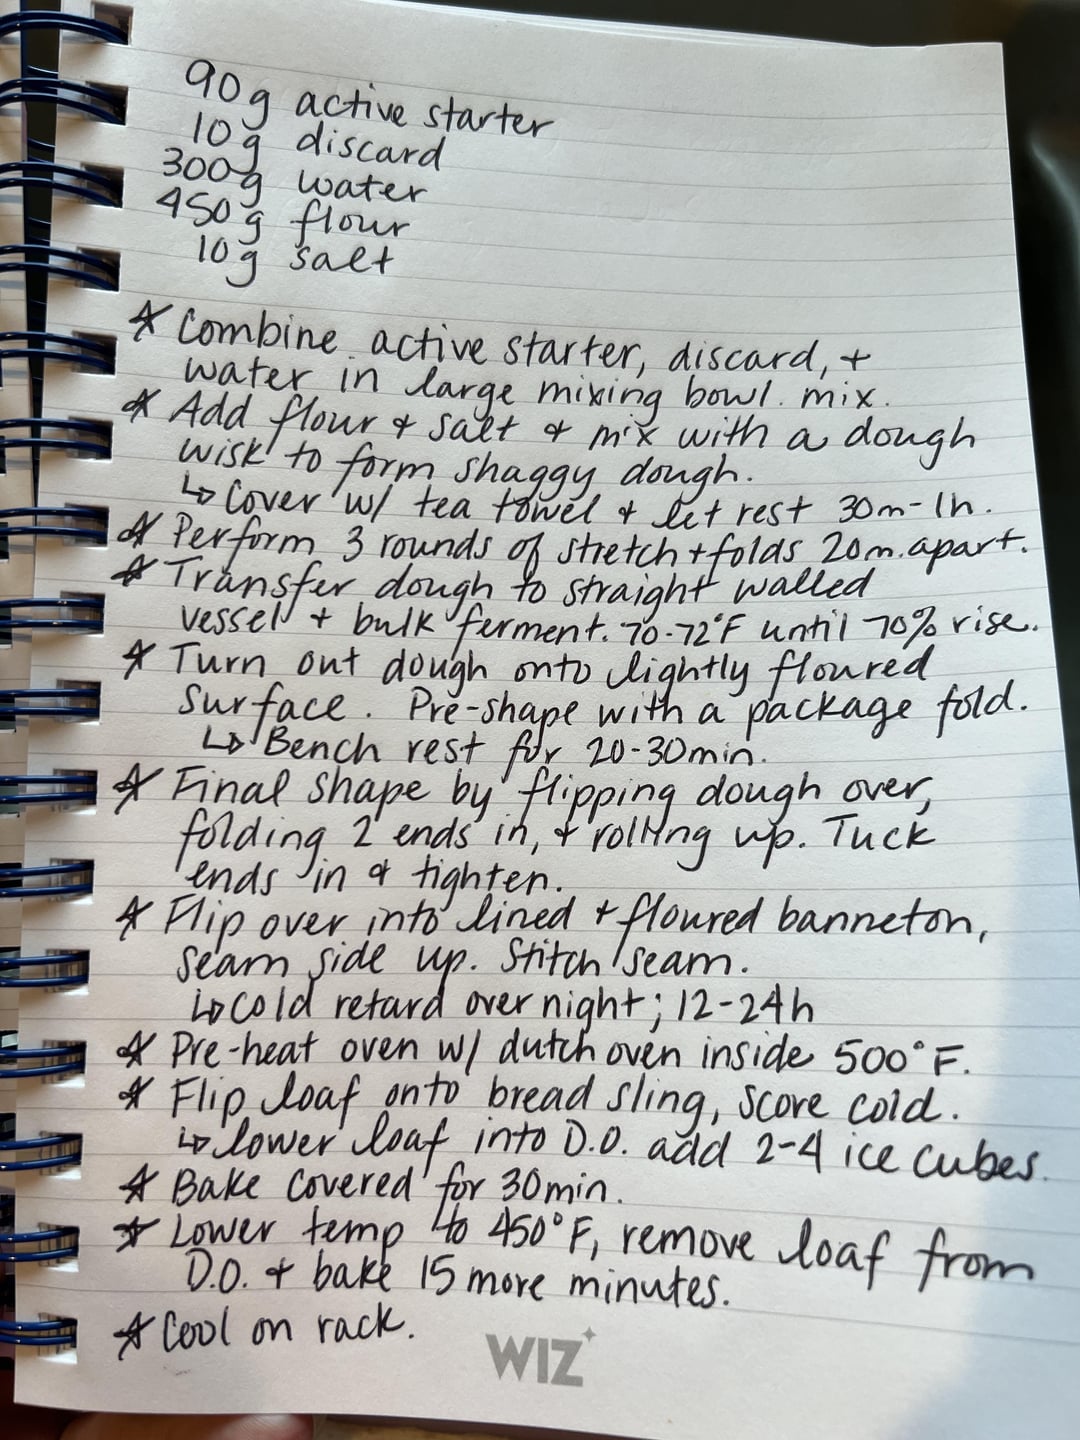 90g active starter
10g discard
300g water
450g flour
10g salt
* Combine active starter, discard, +
water in large mixing bowl. mix.
* Add flour & salt & mix with a dough
wisk to form shaggy dough.
↳ Cover w/ tea towel & let rest 30m-1h.
* Perform 3 rounds of stretch + folds 20m. apart.
* Transfer dough to straight walled
vessel + bulk ferment. 70-72°F until 70% rise.
* Turn out dough onto lightly floured
surface. Pre-shape with a package fold.
↳ Bench rest for 20-30min.
* Final shape by flipping dough over,
folding 2 ends in, & rolling up. Tuck
ends in & tighten.
* Flip over into lined + floured banneton,
seam side up. Stitch seam.
↳ Cold retard overnight; 12-24h
* Pre-heat oven w/ dutch oven inside 500°F.
* Flip loaf onto bread sling, score cold.
↳ lower loaf into D.O. add 2-4 ice cubes.
* Bake covered for 30min.
* Lower temp to 450°F, remove loaf from
D.O. & bake 15 more minutes.
* Cool on rack.
WIZ